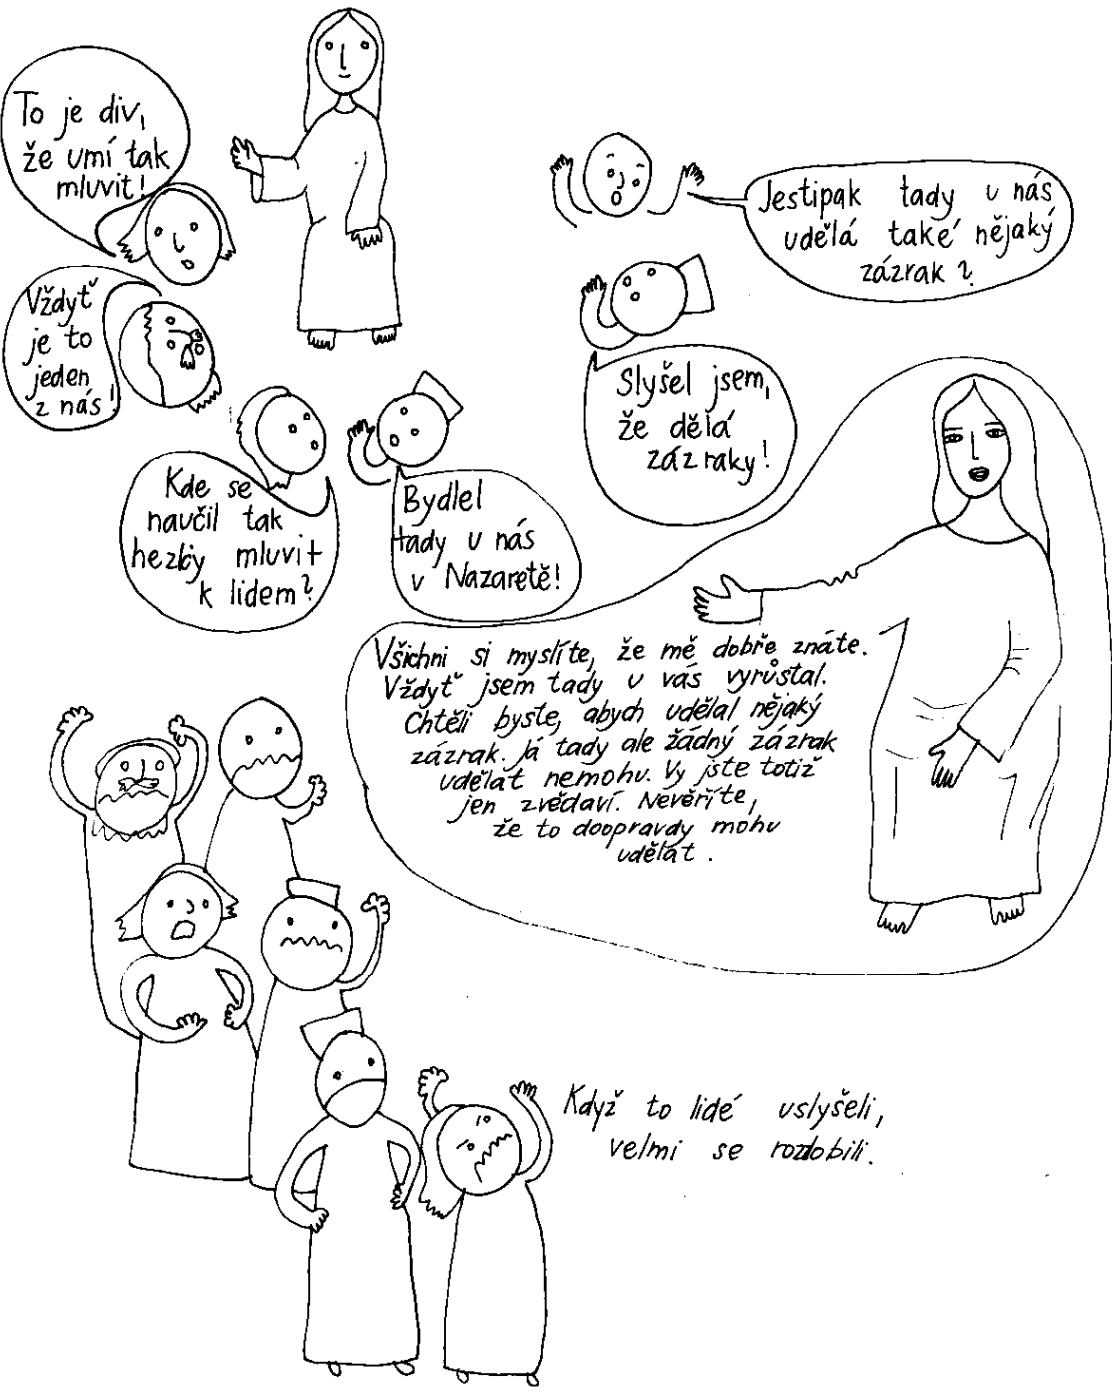 To je div,
že umí tak
mluvit!
Vždyť
je to
jeden
z nás!
Kde se
naučil tak
hezky mluvit
k lidem?
Bydlel
tady u nás
v Nazaretě!
Jestipak tady u nás
udělá také nějaký
zázrak?
Slyšel jsem,
že dělá
zázraky!
Všichni si myslíte, že mě dobře znáte.
Vždyť jsem tady u vás vyrůstal.
Chtěli byste, abych udělal nějaký
zázrak. Já tady ale žádný zázrak
udělat nemohu. Vy jste totiž
jen zvědaví. Nevěříte,
že to doopravdy mohu
udělat.
Když to lidé uslyšeli,
velmi se rozzlobili.